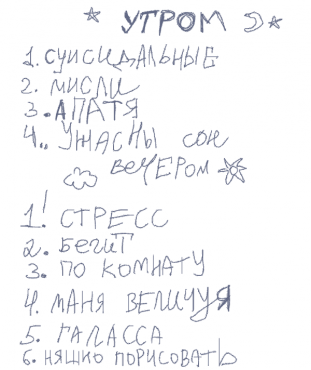 УТРОМ
1. СУИСИДАЛЬНЫЕ
2. МИСЛИ
3. АПАТЯ
4.. УЖАСНЫ СОН
ВЕЧЕРОМ
1! СТРЕСС
2. БЕГИТ
3. ПО КОМНАТУ
4. МАНЯ ВЕЛИЧУЯ
5. ГАЛАССА
6. НЯШНО ПОРИСОВАТЬ